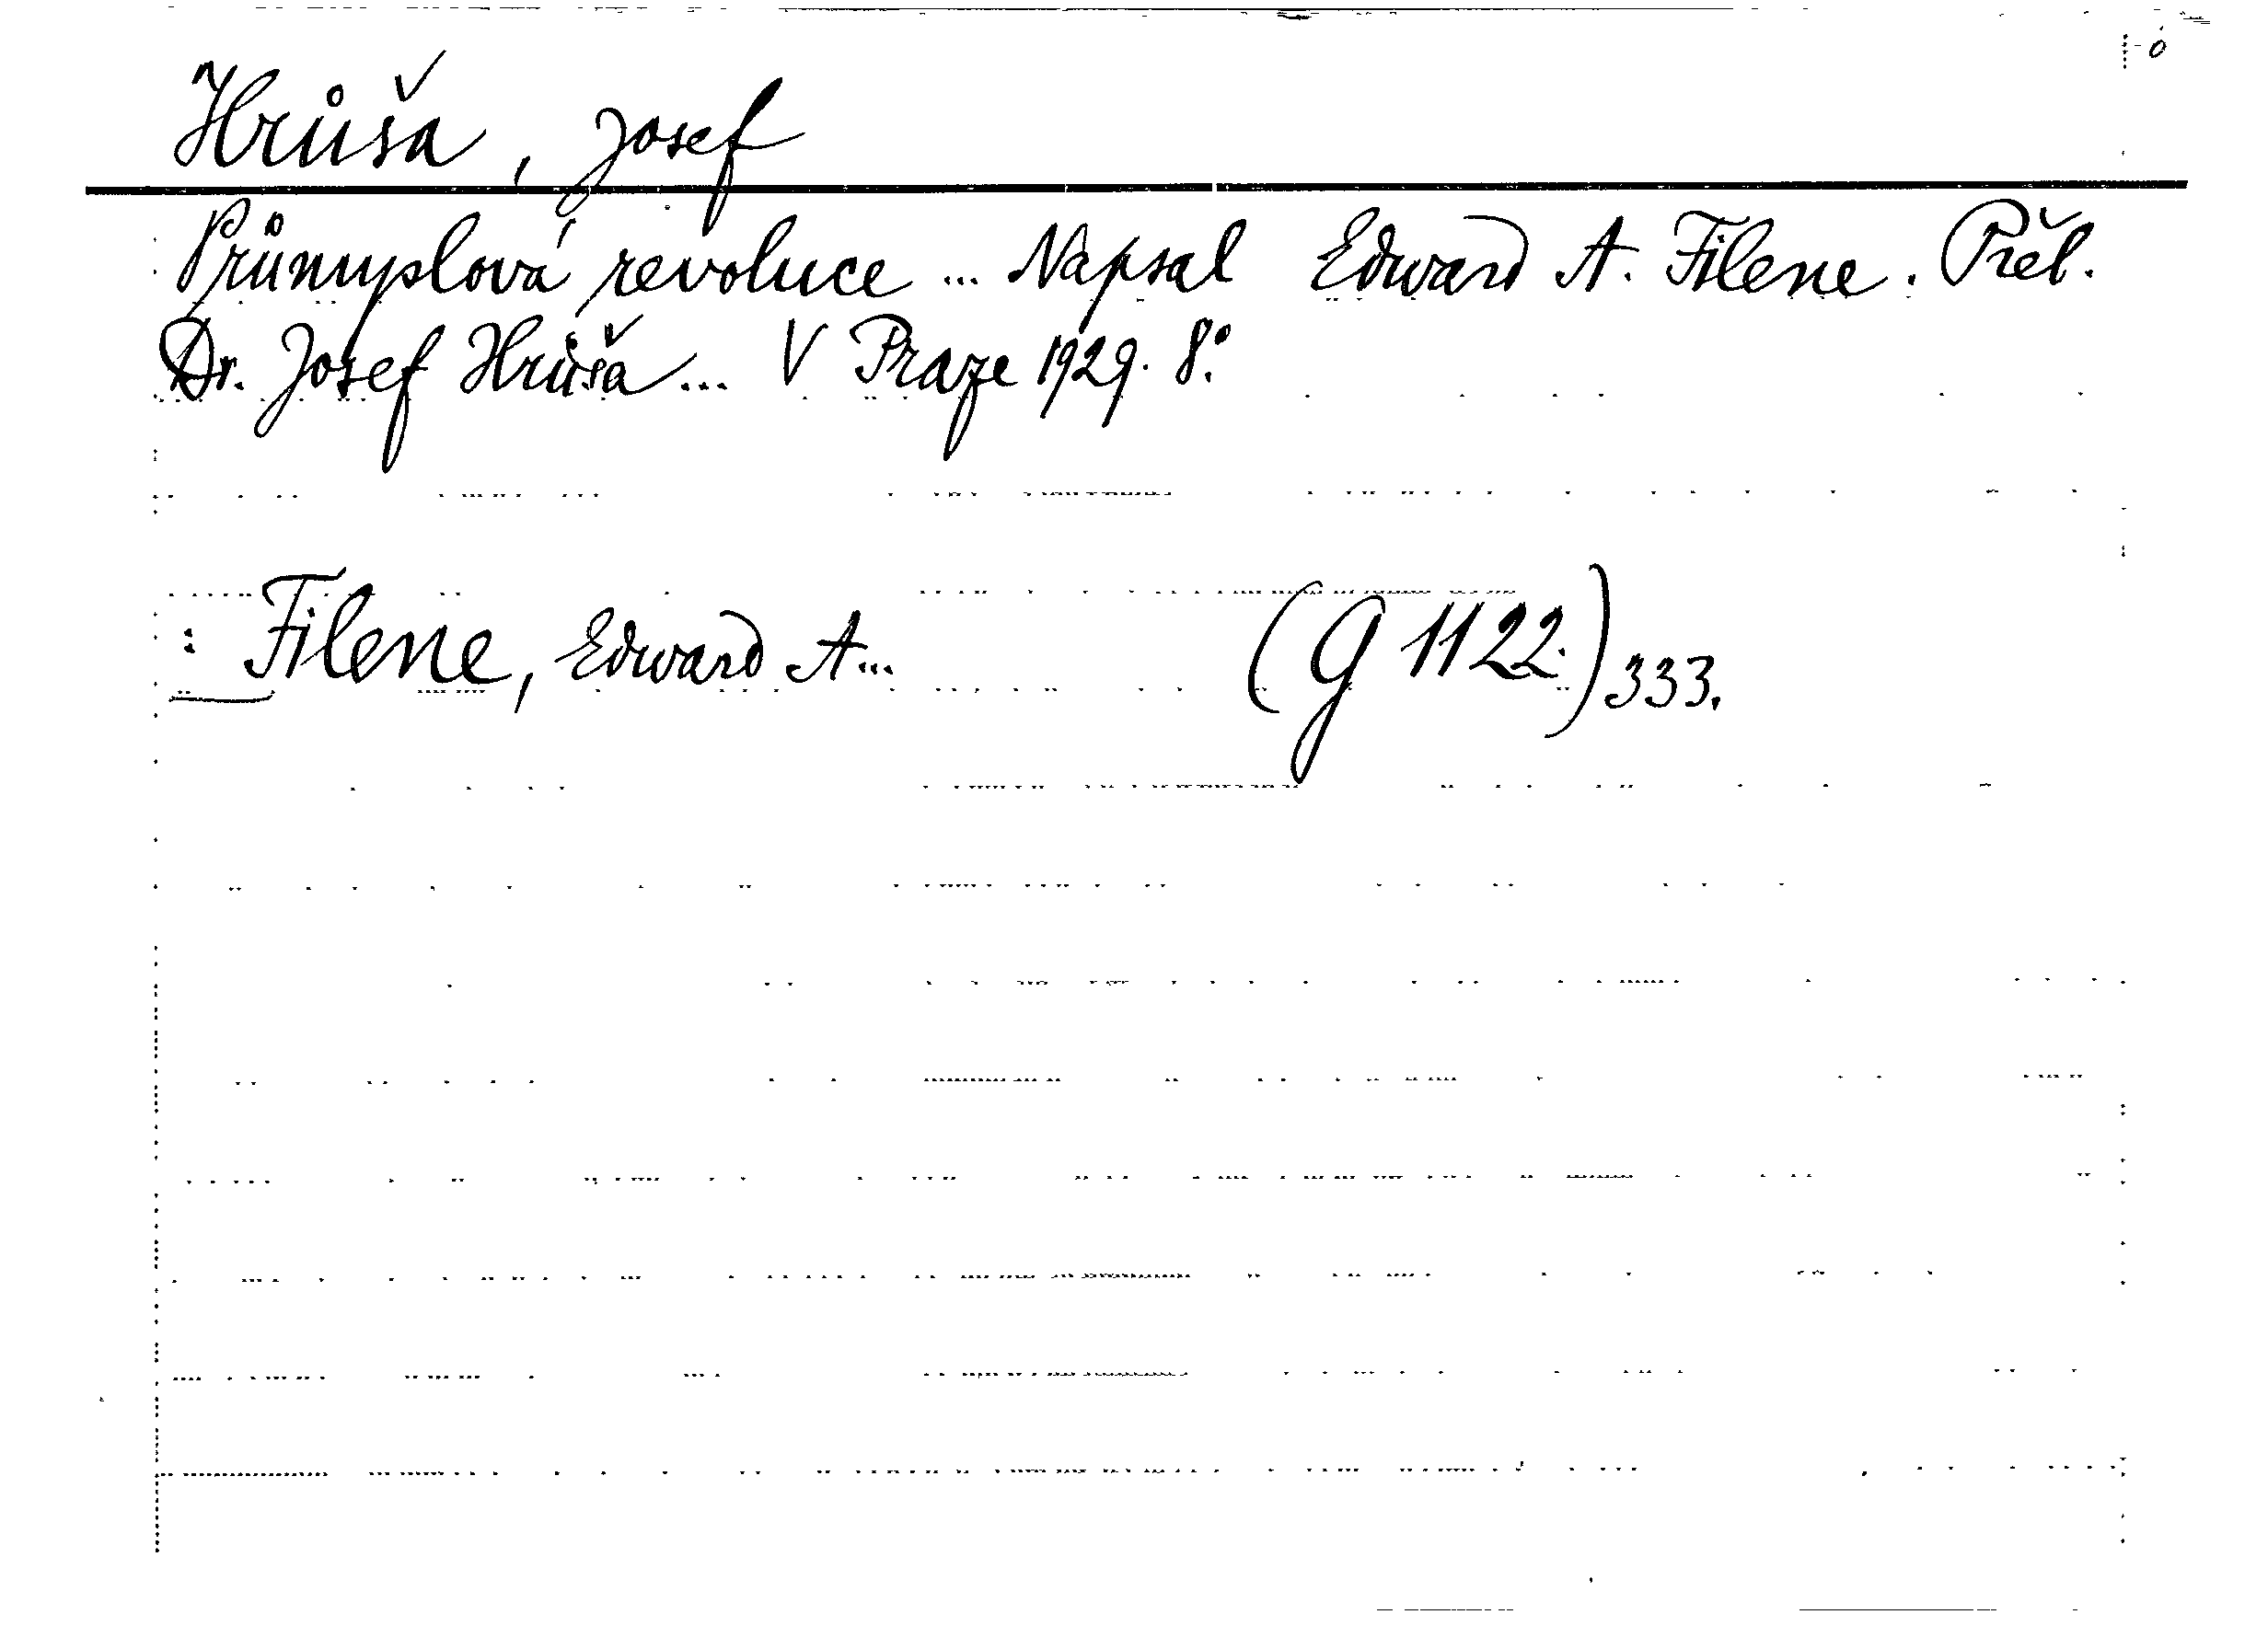 Hrůša, Josef
Průmyslová revoluce ... Napsal Edward A. Filene. Přel.
Dr. Josef Hrůša ... V Praze 1929. 8°.
: Filene, Edward A... (G 1122.) 333.